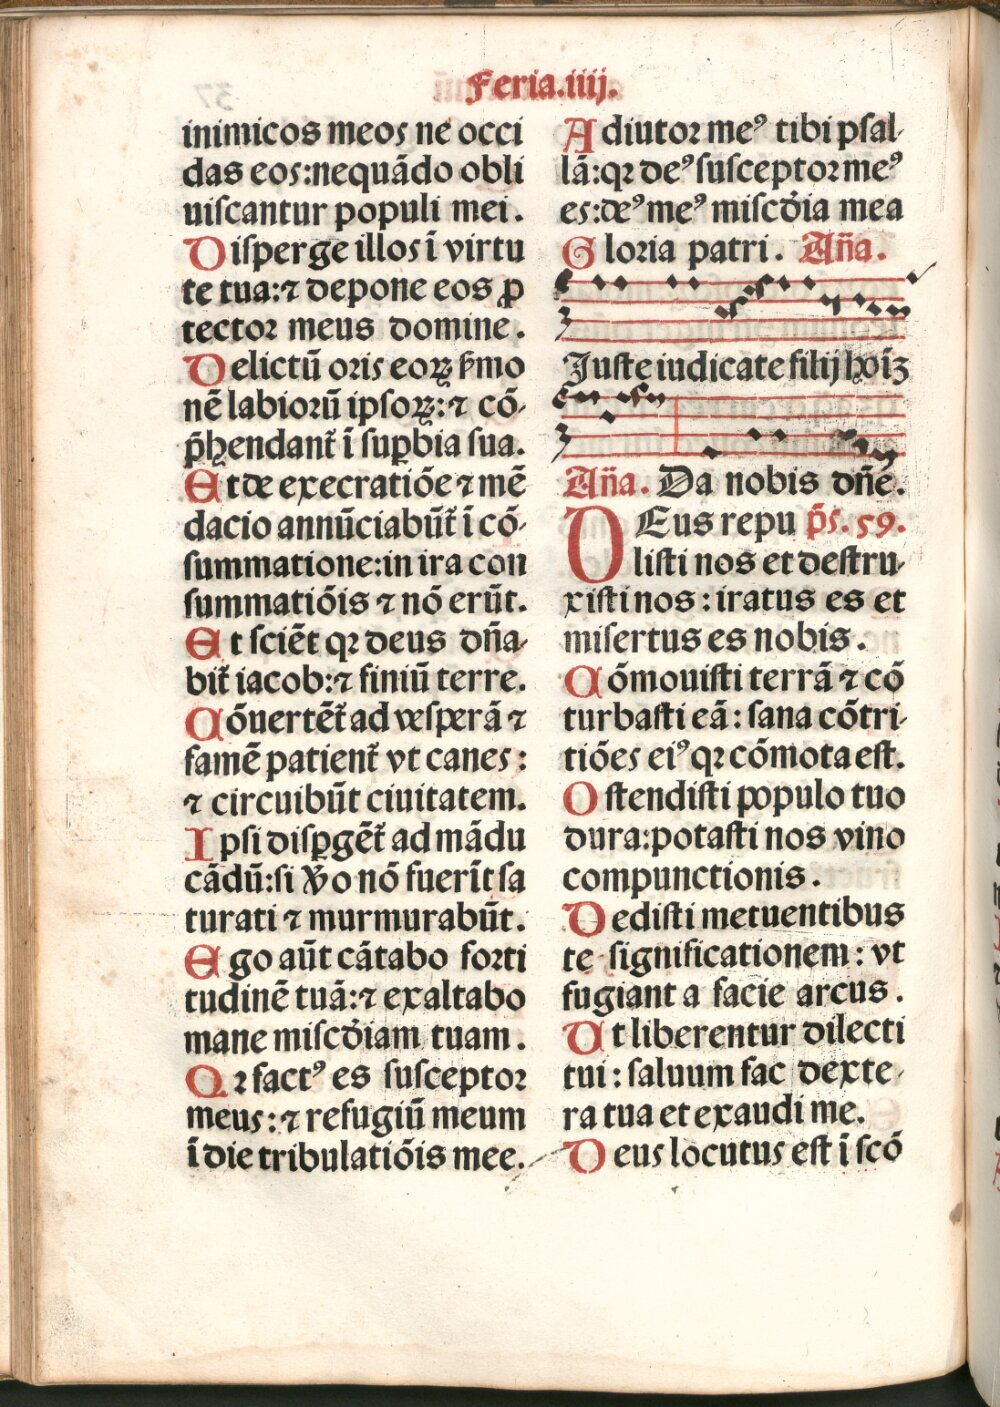 Feria.iiij.
inimicos meos ne occi
das eos:nequãdo obli
uiscantur populi mei.
Disperge illos ĩ virtu
te tua:⁊ depone eos ꝓ
tector meus domine.
Delictũ oris eoꝝ s̃mo
nẽ labiorũ ipsoꝝ:⁊ cõ-
p̃hendant᷑ ĩ suꝑbia sua.
Et de execratiõe ⁊ mẽ
dacio annũciabũt᷑ ĩ cõ-
summatione:in ira con
summatiõis ⁊ nõ erũt.
Et sciẽt qꝛ deus dña-
bit᷑ iacob:⁊ finiũ terre.
Cõuertẽt᷑ ad vesperã ⁊
famẽ patient᷑ vt canes:
⁊ circuibũt ciuitatem.
Ipsi disꝑgẽt᷑ ad mãdu
cãdũ:si v̾o nõ fuerĩt sa
turati ⁊ murmurabũt.
Ego aũt cãtabo forti
tudinẽ tuã:⁊ exaltabo
mane miscd̾iam tuam.
Qꝛ factꝰ es susceptor
meus:⁊ refugiũ meum
ĩ die tribulatiõis mee.
Adiutor meꝰ tibi psal-
lã:qꝛ deꝰ susceptor meꝰ
es:deꝰ meꝰ miscd̾ia mea
Gloria patri. Aña.
Juste iudicate filij hoĩꝫ
Aña. Da nobis dñe.
DEus repu p̃s.59.
listi nos et destru-
xisti nos:iratus es et
misertus es nobis.
Cõmouisti terrã ⁊ cõ
turbasti eã:sana cõtri-
tiões eiꝰ qꝛ cõmota est.
Ostendisti populo tuo
dura:potasti nos vino
compunctionis.
Dedisti metuentibus
te significationem:vt
fugiant a facie arcus.
Ut liberentur dilecti
tui:saluum fac dexte-
ra tua et exaudi me.
Deus locutus est ĩ scõ